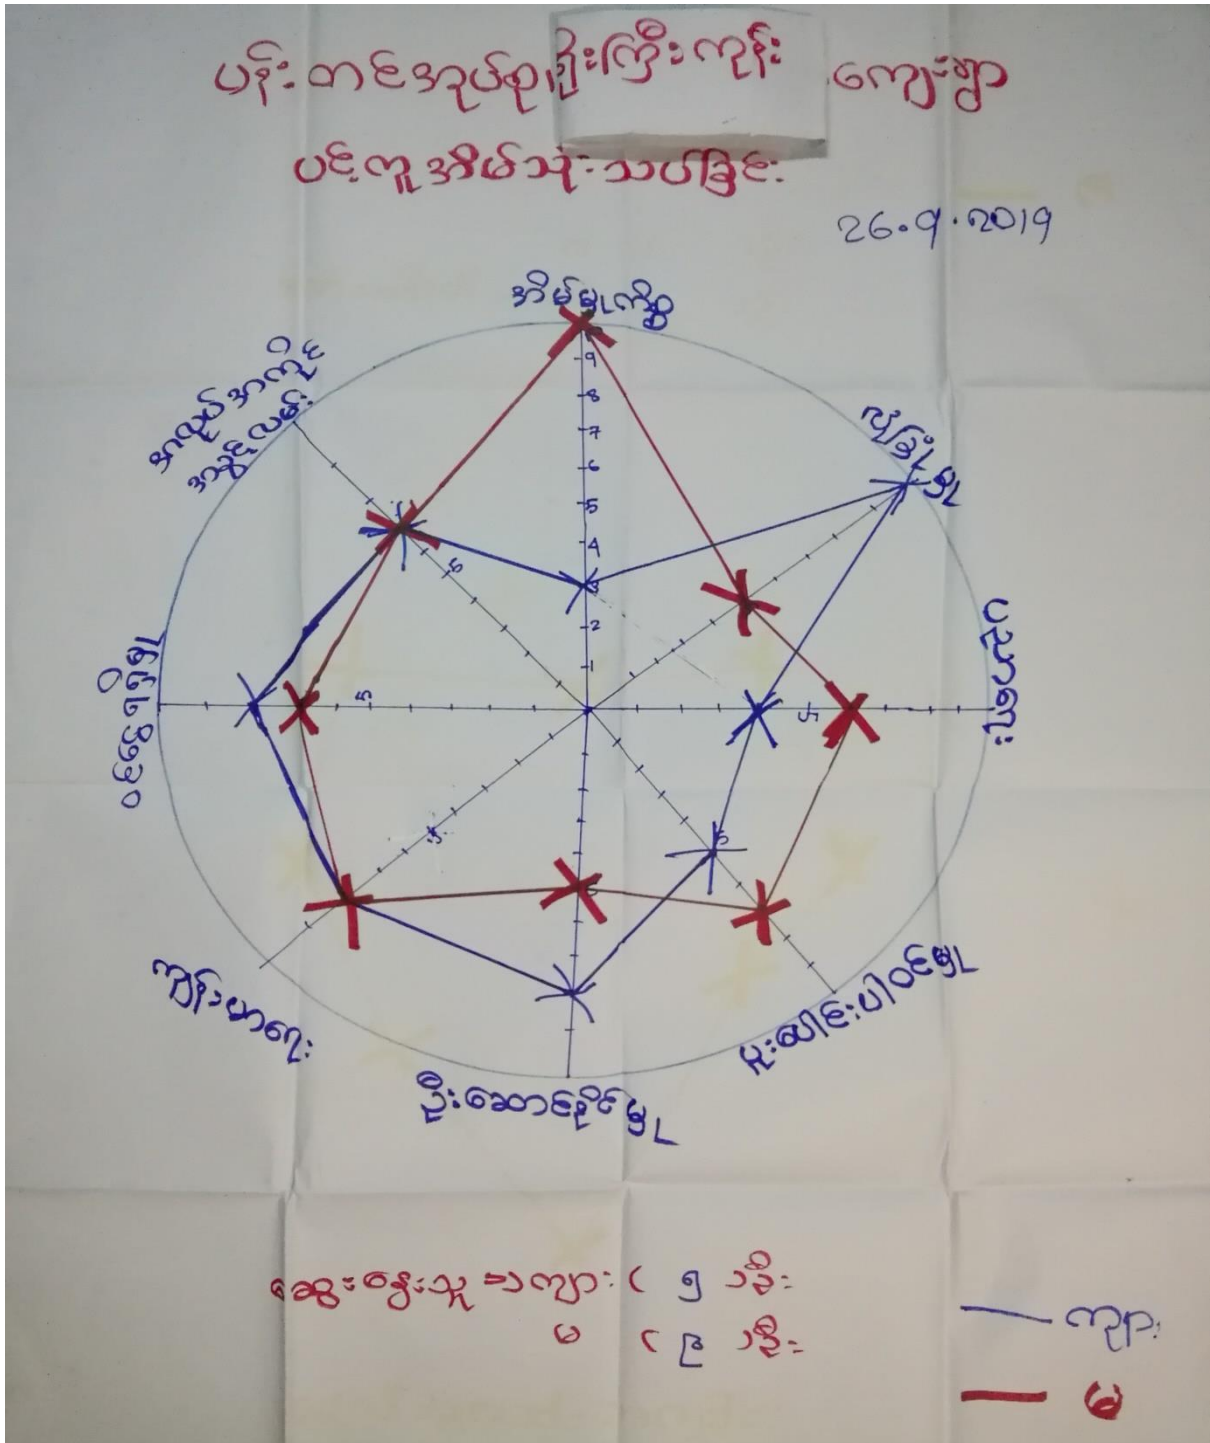 ပန်းတင်အုပ်စု၊ ရိုးကြီးကုန်း ကျေးရွာ
ပင့်ကူအိမ်သုံးသပ်ခြင်း
26.9.2019
အိမ်မှုကိစ္စ
လုံခြုံမှု
ပညာရေး
ပူးပေါင်းပါဝင်မှု
ဦးဆောင်နိုင်မှု
ကျန်းမာရေး
အလုပ်အကိုင်
အခွင့်လမ်း
9
8
7
6
5
4
3
2
1
5
5
5
5
ဆွေးနွေးသူ ကျား ( ၅ ) ဦး
မ ( ဥ ) ဦး
ကျား
မ